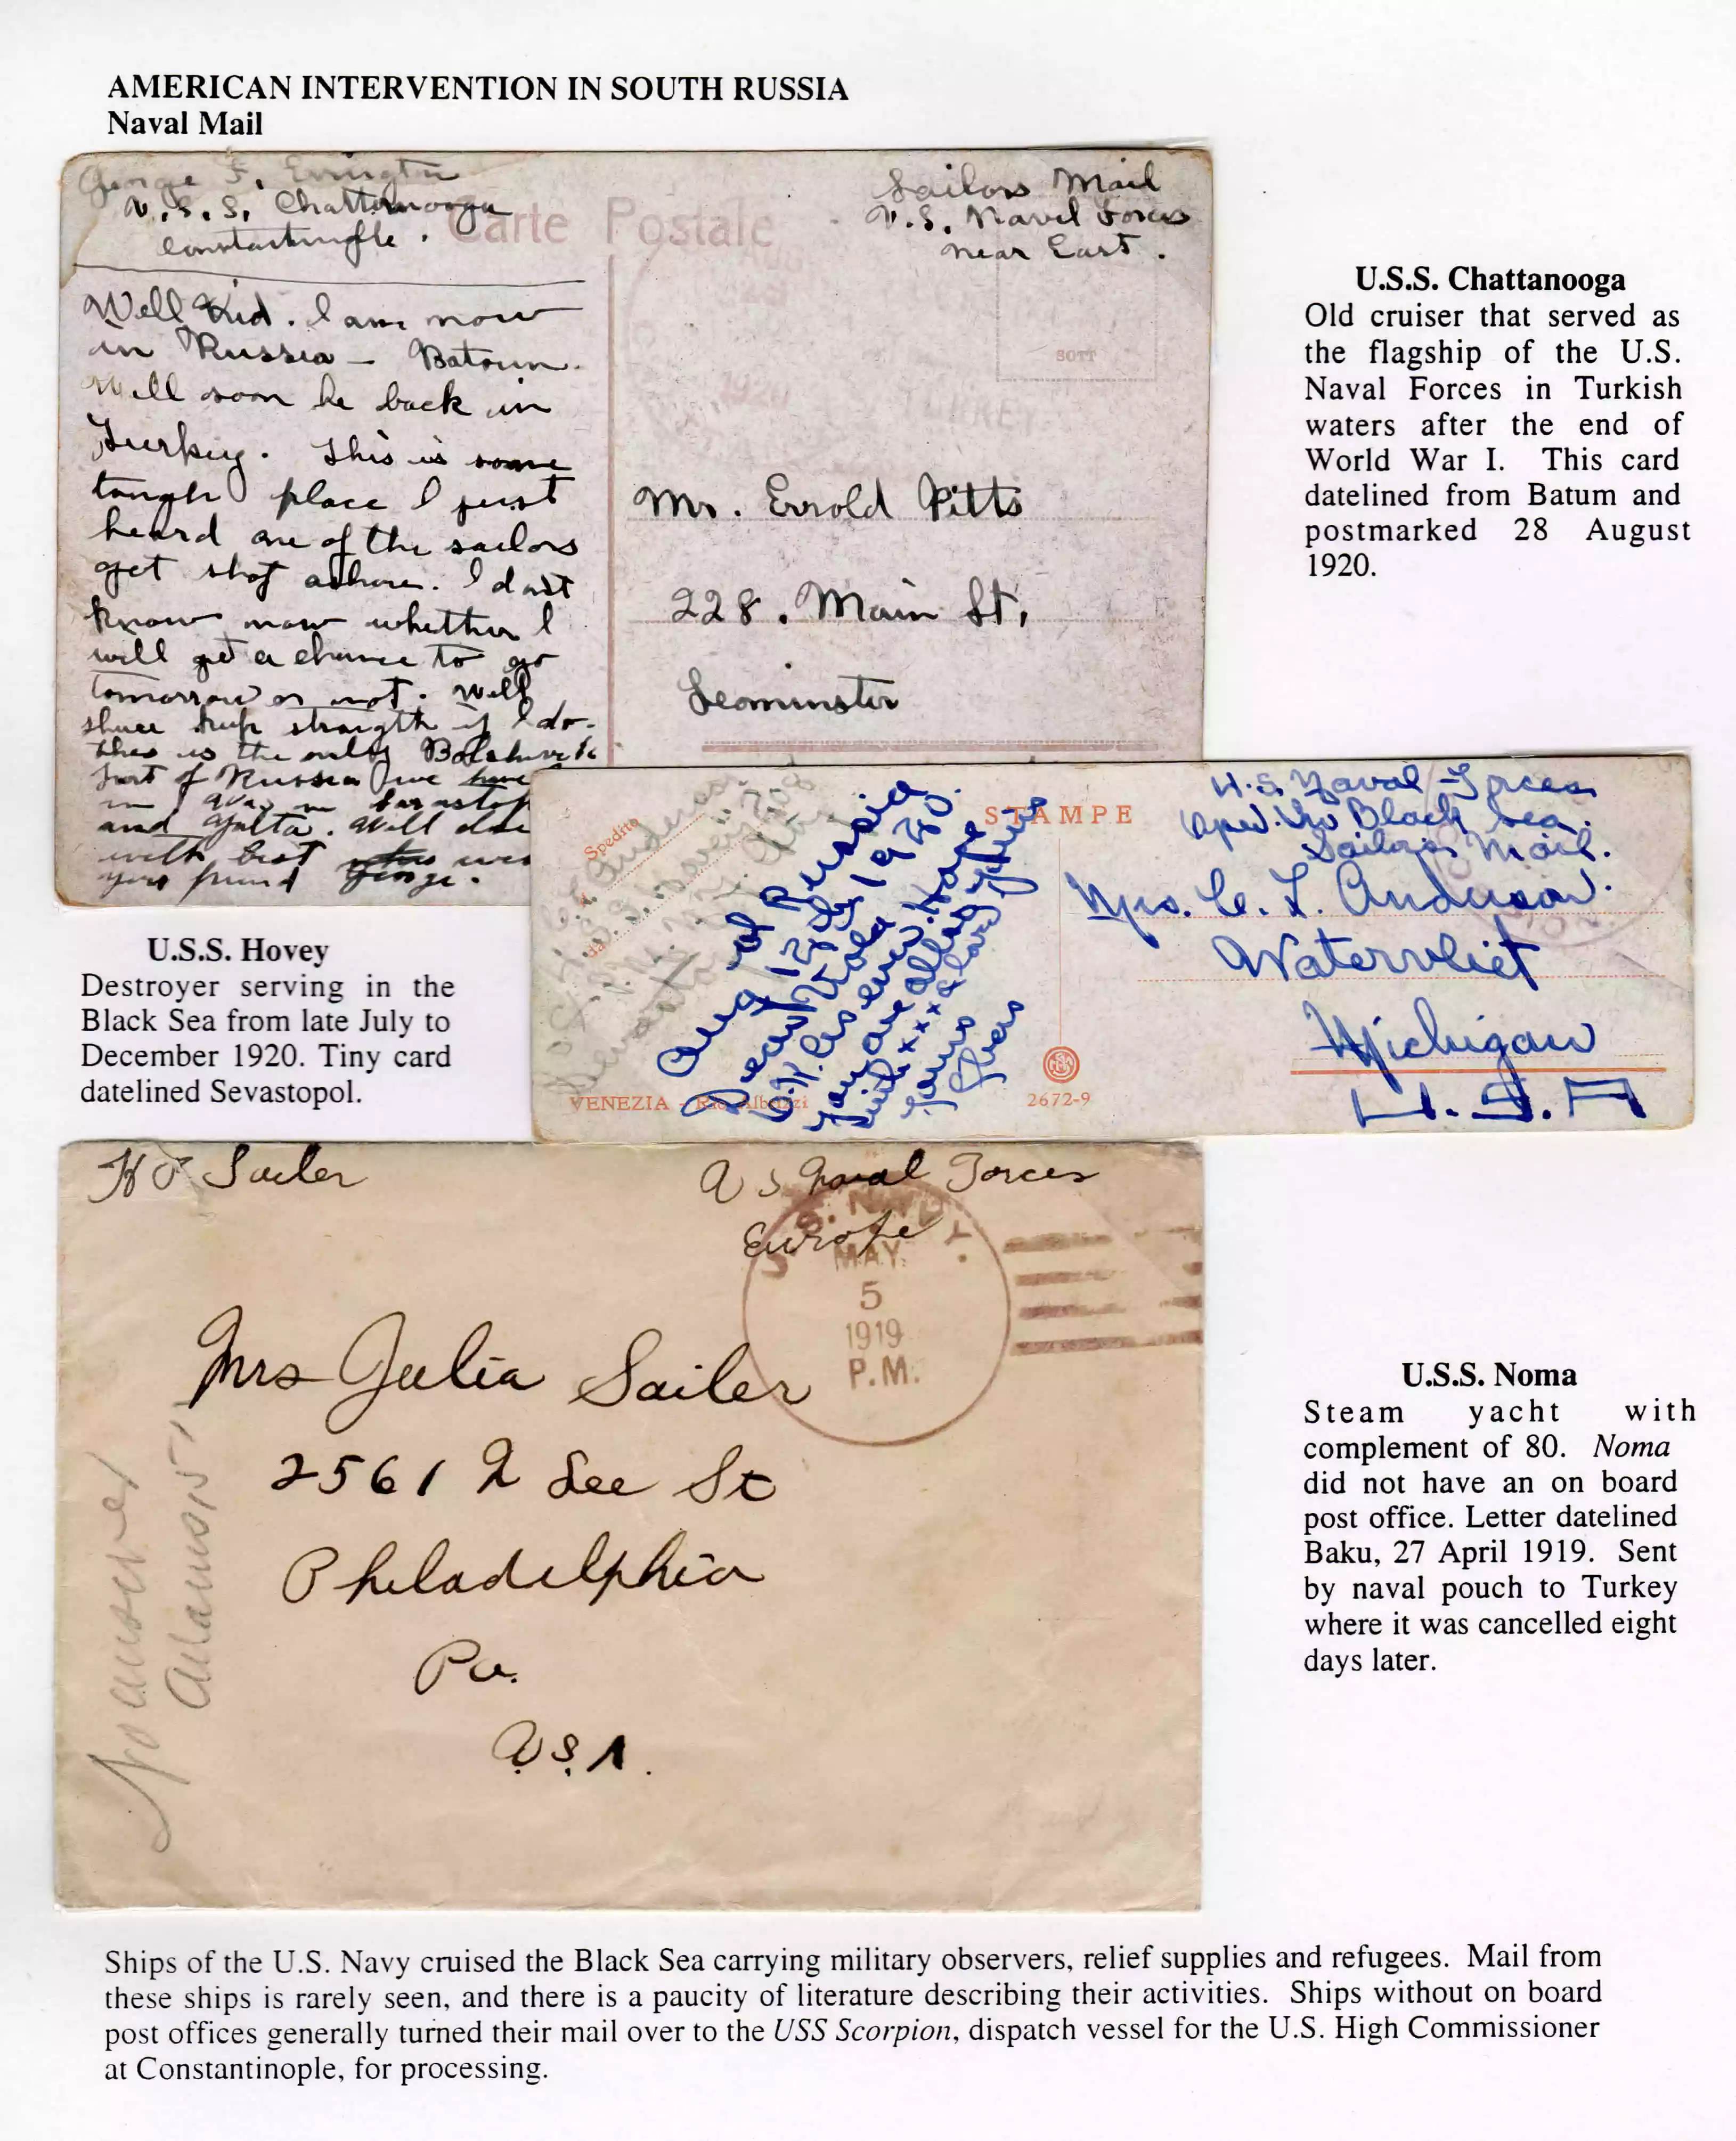 AMERICAN INTERVENTION IN SOUTH RUSSIA
Naval Mail
George F. Errington
U.S.S. Chattanooga
Constantinople.
Carte Postale
Sailors Mail
U.S. Naval Forces
near East.
Well Kid. I am now
in Russia — Batoum.
Will soon be back in
Turkey. This is some
tough place I just
heard one of the sailors
get shot ashore. I dont
know now whether I
will get a chance to go
tomorrow or not. Well
the only Bolshevik
Part of Russia I've
and Yalta. Will
with best
your friend George.
1920
TURKEY
SOTT
Mr. Errold Pitts
228. Main St,
Leominster
U.S.S. Chattanooga
Old cruiser that served as
the flagship of the U.S.
Naval Forces in Turkish
waters after the end of
World War I. This card
datelined from Batum and
postmarked 28 August
1920.
U.S.S. Hovey
Destroyer serving in the
Black Sea from late July to
December 1920. Tiny card
datelined Sevastopol.
Spedito
da
STAMPE
Aug 12 1920.
VENEZIA
2672-9
U.S. Naval Forces
Black Sea.
Sailors Mail.
Mrs. C. L. Anderson.
Watervliet
Michigan
U.S.A
H P Sailer
U S Naval Forces
Europe
U.S. NAVY.
MAY
5
1919
P.M.
Mrs Julia Sailer
2561 N Lee St
Philadelphia
Pa.
U.S.A.
No answer
U.S.S. Noma
Steam yacht with
complement of 80. Noma
did not have an on board
post office. Letter datelined
Baku, 27 April 1919. Sent
by naval pouch to Turkey
where it was cancelled eight
days later.
Ships of the U.S. Navy cruised the Black Sea carrying military observers, relief supplies and refugees. Mail from
these ships is rarely seen, and there is a paucity of literature describing their activities. Ships without on board
post offices generally turned their mail over to the USS Scorpion, dispatch vessel for the U.S. High Commissioner
at Constantinople, for processing.